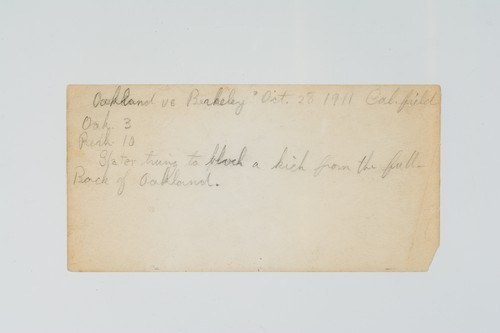 Oakland vs Berkeley" Oct. 28 1911 Cal. field
Oak. 3
Berk. 10
trying to block a kick from the full-
Back of Oakland.